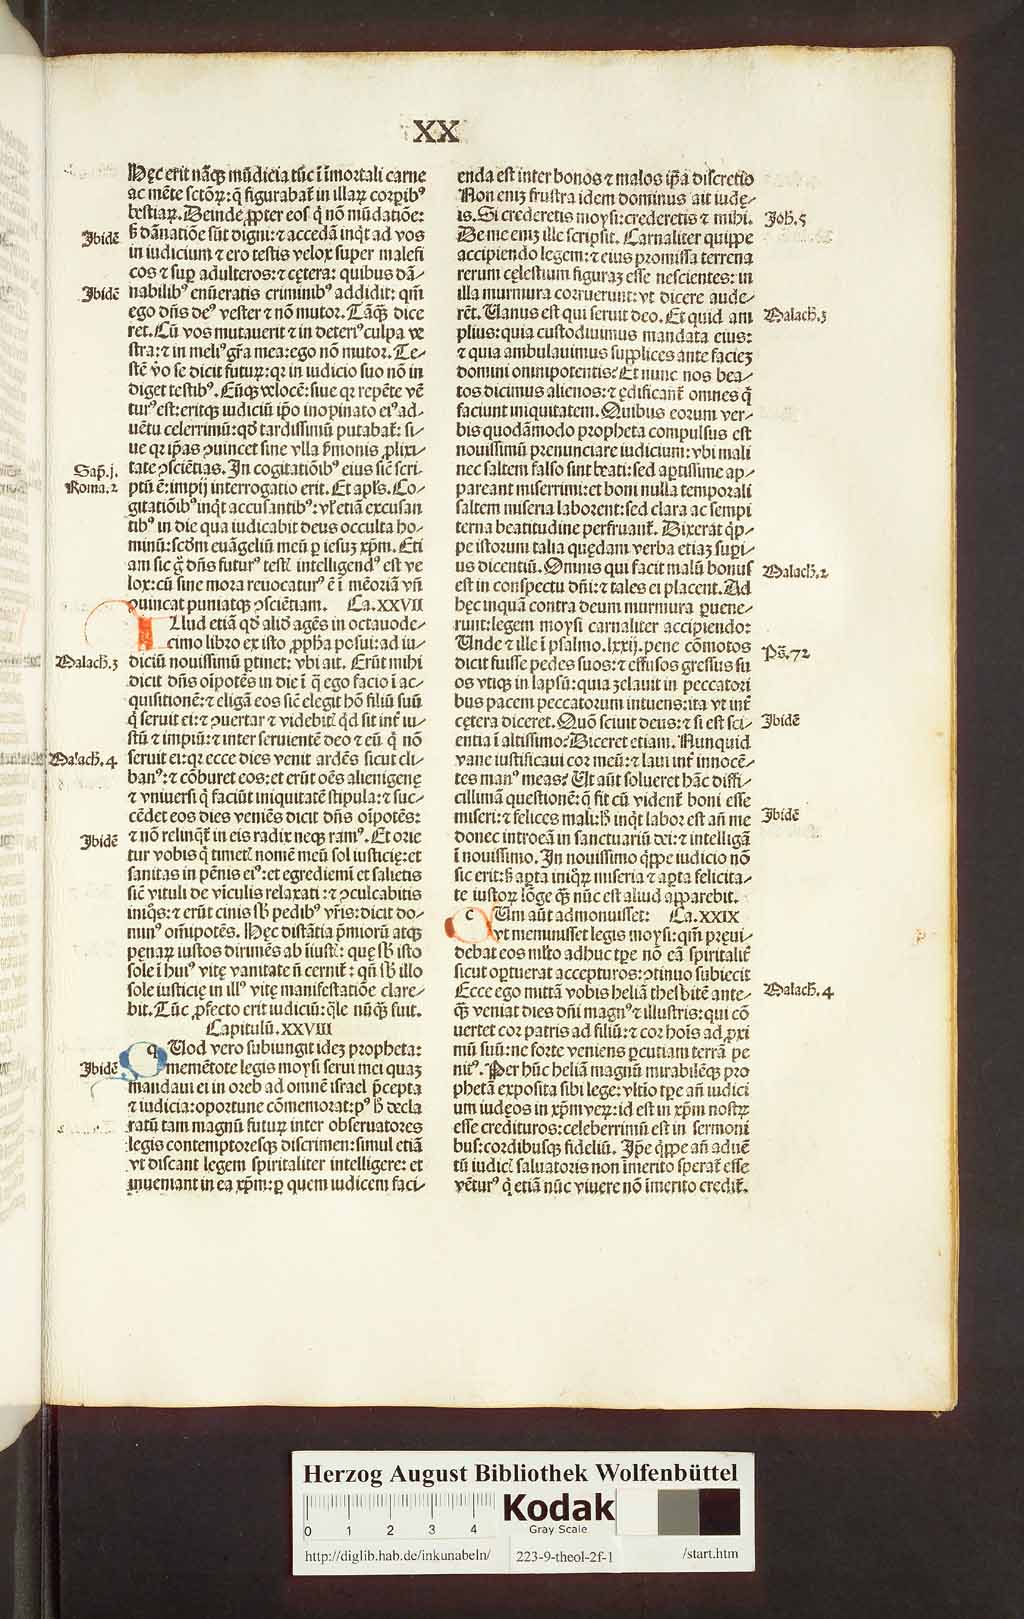 XX
Hęc erit nāqꝫ mūdicia tūc ī īmortali carne
ac mēte sctōꝝ: q̄ figurabaƭ in illaꝝ corꝑibꝰ
bestiaꝝ. Deinde ꝓpter eos q̄ nō mūdatiōe:
Ibidē
sꝫ dānatiōe sūt digni: ⁊ accedā inqͥt ad vos
in iudicium ⁊ ero testis velox super malefi
cos ⁊ suꝑ adulteros: ⁊ cętera: quibus dā-
Ibidē
nabilibꝰ enūeratis criminibꝰ addidit: qm̄
ego dn̄s deꝰ vester ⁊ nō mutor. Tāqꝫ dice
ret. Cū vos mutauerit ⁊ in deteriꝰ culpa ve
stra: ⁊ in meliꝰ gr̄a mea: ego nō mutor. Te-
stē v̄o se dicit futuꝝ: qꝛ in iudicio suo nō in
diget testibꝰ. Eūqꝫ velocē: siue qꝛ repēte vē
turꝰ est: eritqꝫ iudiciū ip̄o inopinato eiꝰ ad-
uētu celerrimū: qd̄ tardissimū putabaƭ: si-
ue qꝛ ip̄as ꝯuincet sine vlla p̄monis ꝓlixi-
Sap̄. j.
tate ꝯsciētias. In cogitatiōibꝰ eius siē scri-
Roma. 2
ptū ē: impij interrogatio erit. Et apl̄s. Co-
gitatiōibꝰ inqͥt accusantibꝰ: vl̓ etiā excusan
tibꝰ in die qua iudicabit deus occulta ho-
minū: scd̄m euāgeliū meū ꝑ iesuꝫ xp̄m. Eti
am sic ḡ dn̄s futurꝰ test̓ intelligendꝰ est ve
lox: cū sine mora reuocaturꝰ ē ī mēoriā vn̄
ꝯuincat puniatqꝫ ꝯsciētiam. Ca. XXVII
Illud etiā qd̄ aliō agēs in octauode-
cimo libro ex isto ꝓpha posui: ad iu-
Malach̄. 3
diciū nouissimū ꝑtinet: vbi ait. Erūt mihi
dicit dn̄s oīpotēs in die ī q̄ ego facio ī ac-
quisitionē: ⁊ eligā eos siē elegit hō filiū suū
q̄ seruit ei: ⁊ ꝯuertar ⁊ videbit̓ qd̄ sit int̄ iu-
stū ⁊ impiū: ⁊ inter seruientē deo ⁊ eū q̄ nō
Malach̄. 4
seruit ei: qꝛ ecce dies venit ardēs sicut cli-
banꝰ: ⁊ cōburet eos: et erūt oēs alienigenę
⁊ vniuersi q̄ faciūt iniquitatē stipula: ⁊ suc-
cēdet eos dies veniēs dicit dn̄s oīpotēs:
Ibidē
⁊ nō relinqͥƭ in eis radix neqꝫ ramꝰ. Et orie
tur vobis q̄ timet̓ nomē meū sol iusticię: et
sanitas in pēnis eiꝰ: et egrediemī et salietis
siē vituli de viculis relaxati: ⁊ ꝯculcabitis
iniqͦs: ⁊ erūt cinis sb̄ pedibꝰ vr̄is: dicit do-
minꝰ om̄ipotēs. Hęc distātia p̄miorū atqꝫ
penaꝝ iustos dirimēs ab iīust̓: quę sb̄ isto
sole ī huiꝰ vitę vanitate n̄ cerniƭ: qn̄ sb̄ illo
sole iusticię in illꝰ vitę manifestatiōe clare-
bit. Tūc ꝓfecto erit iudiciū: qͣle nūqꝫ fuit.
Capitulū. XXVIII
QUod vero subiungit ideꝫ propheta:
Ibidē
memētote legis moysi serui mei quaꝫ
mandaui ei in oreb ad omnē israel p̄cepta
⁊ iudicia: oportune cōmemorat: pꝰ h̄ decla
ratū tam magnū futuꝝ inter obseruatores
legis contemptoresqꝫ discrimen: simul etiā
vt discant legem spiritaliter intelligere: et
inueniant in ea xp̄m: ꝑ quem iudicem faci-
enda est inter bonos ⁊ malos ip̄a discretio
Non eniꝫ frustra idem dominus ait iudę-
Joh̄. 5
is. Si crederetis moysi: crederetis ⁊ mihi.
De me eniꝫ ille scripsit. Carnaliter quippe
accipiendo legem: ⁊ eius promissa terrena
rerum cęlestium figuraꝫ esse nescientes: in
illa murmura corruerunt: vt dicere aude-
Malach̄. 3
rēt. Uanus est qui seruit deo. Et quid am
plius: quia custodiuimus mandata eius:
⁊ quia ambulauimus supplices ante facieꝫ
domini omnipotentis? Et nunc nos bea-
tos dicimus alienos: ⁊ ędificanƭ omnes q̄
faciunt iniquitatem. Quibus eorum ver-
bis quodāmodo propheta compulsus est
nouissimū prenunciare iudicium: vbi mali
nec saltem falso sint beati: sed aptissime ap-
pareant miserrimi: et boni nulla temporali
saltem miseria laborent: sed clara ac sempi
terna beatitudine perfruanƭ. Dixerat qͥp-
pe istorum talia quędam verba etiaꝫ suꝑi-
Malach̄. 2
us dicentiū. Omnis qui facit malū bonus
est in conspectu dn̄i: ⁊ tales ei placent. Ad
hęc inquā contra deum murmura ꝑuene-
runt: legem moysi carnaliter accipiendo:
Ps̄. 72
Unde ⁊ ille ī psalmo. lxxij. pene cōmotos
dicit fuisse pedes suos: ⁊ effusos gressus su
os vtiqꝫ in lapsū: quia zelauit in peccatori
bus pacem peccatorum intuens: ita vt int̄
Ibidē
cętera diceret. Quō sciuit deus: ⁊ si est sci-
entia ī altissimo? Diceret etiam. Nunquid
vane iustificaui cor meū: ⁊ laui int̄ innocē-
tes manꝰ meas? Ut aūt solueret hāc diffi-
cillimā questionē: q̄ fit cū videnƭ boni esse
Ibidē
miseri: ⁊ felices mali: h̄ inqͥt labor est an̄ me
donec introeā in sanctuariū dei: ⁊ intelligā
ī nouissimo. In nouissimo qͥppe iudicio nō
sic erit: sꝫ aꝑta iniqͦꝝ miseria ⁊ aꝑta felicita-
te iustoꝝ lōge qꝫ nūc est aliud apparebit.
CUm aūt admonuisset: Ca. XXIX
vt meminisset legis moysi: qm̄ pręui-
debat eos mlͭto adhuc tꝑe nō eā spiritaliƭ
sicut oꝑtuerat accepturos: ꝯtinuo subiecit
Malach̄. 4
Ecce ego mittā vobis heliā thesbitē ante-
qꝫ veniat dies dn̄i magnꝰ ⁊ illustris: qui cō
uertet cor patris ad filiū: ⁊ cor hoīs ad ꝓxi
mū suū: ne forte veniens ꝑcutiam terrā pe
nitꝰ. Per hūc heliā magnū mirabilēqꝫ pro
phetā exposita sibi lege: vltīo tꝑe an̄ iudici
um iudęos in xp̄m veꝝ: id est in xp̄m nostꝝ
esse credituros: celeberrimū est in sermoni
bus: cordibusqꝫ fideliū. Ip̄e qͥppe an̄ aduē
tū iudic̓ saluatoris non īmerito speraƭ esse
vēturꝰ q̄ etiā nūc viuere nō īmerito crediƭ.
Herzog August Bibliothek Wolfenbüttel
0 1 2 3 4
Kodak
Gray Scale
http://diglib.hab.de/inkunabeln/ 223-9-theol-2f-1 /start.htm